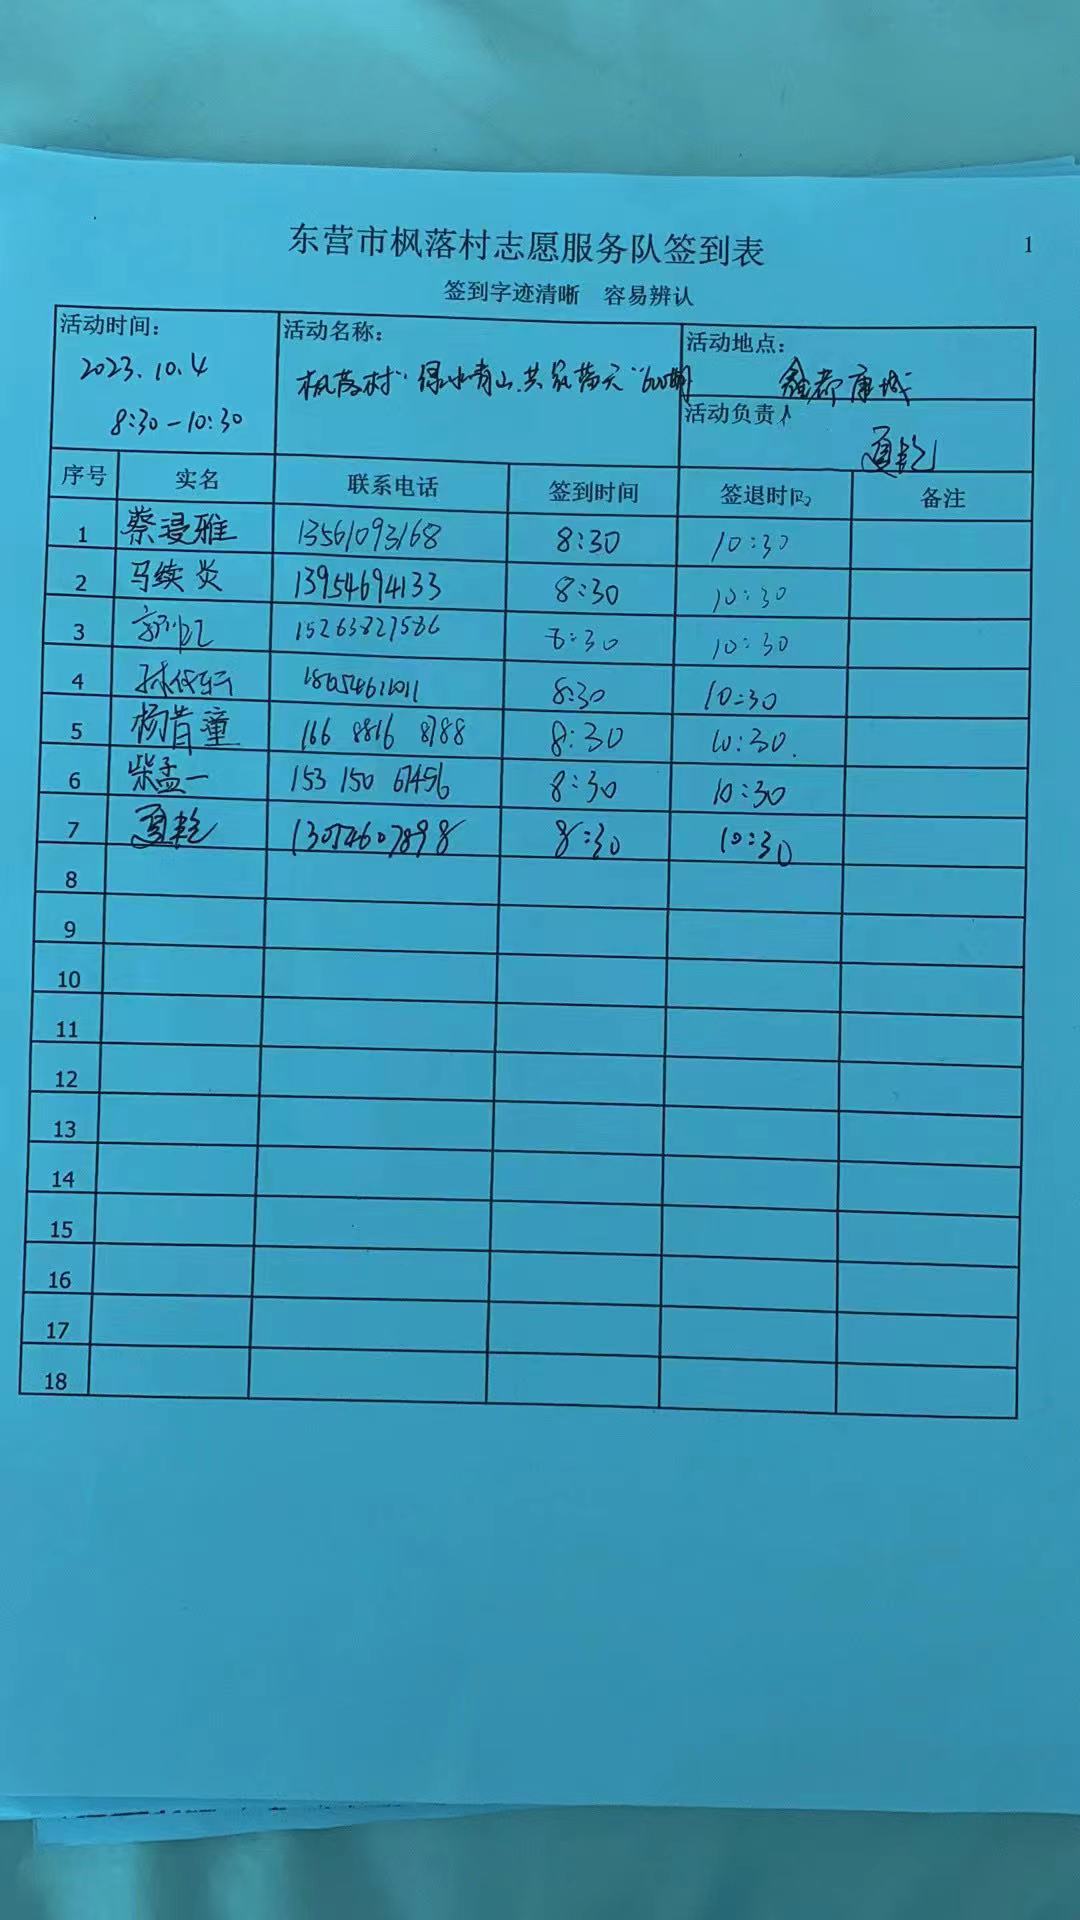 东营市枫落村志愿服务队签到表
1
签到字迹清晰 容易辨认
活动时间:
2023.10.4
8:30-10:30
活动名称:
枫落村"绿水青山.共
活动地点:
康城
活动负责人
序号 实名 联系电话 签到时间 签退时间 备注
1 蔡浸雅 13561093168 8:30 10:30
2 马续炎 13954694133 8:30 10:30
3 15263827586 8:30 10:30
4 8:30 10:30
5 杨昔童 166 8816 8788 8:30 10:30.
6 柴孟一 153 150 67456 8:30 10:30
7 13054607898 8:30 10:30
8
9
10
11
12
13
14
15
16
17
18